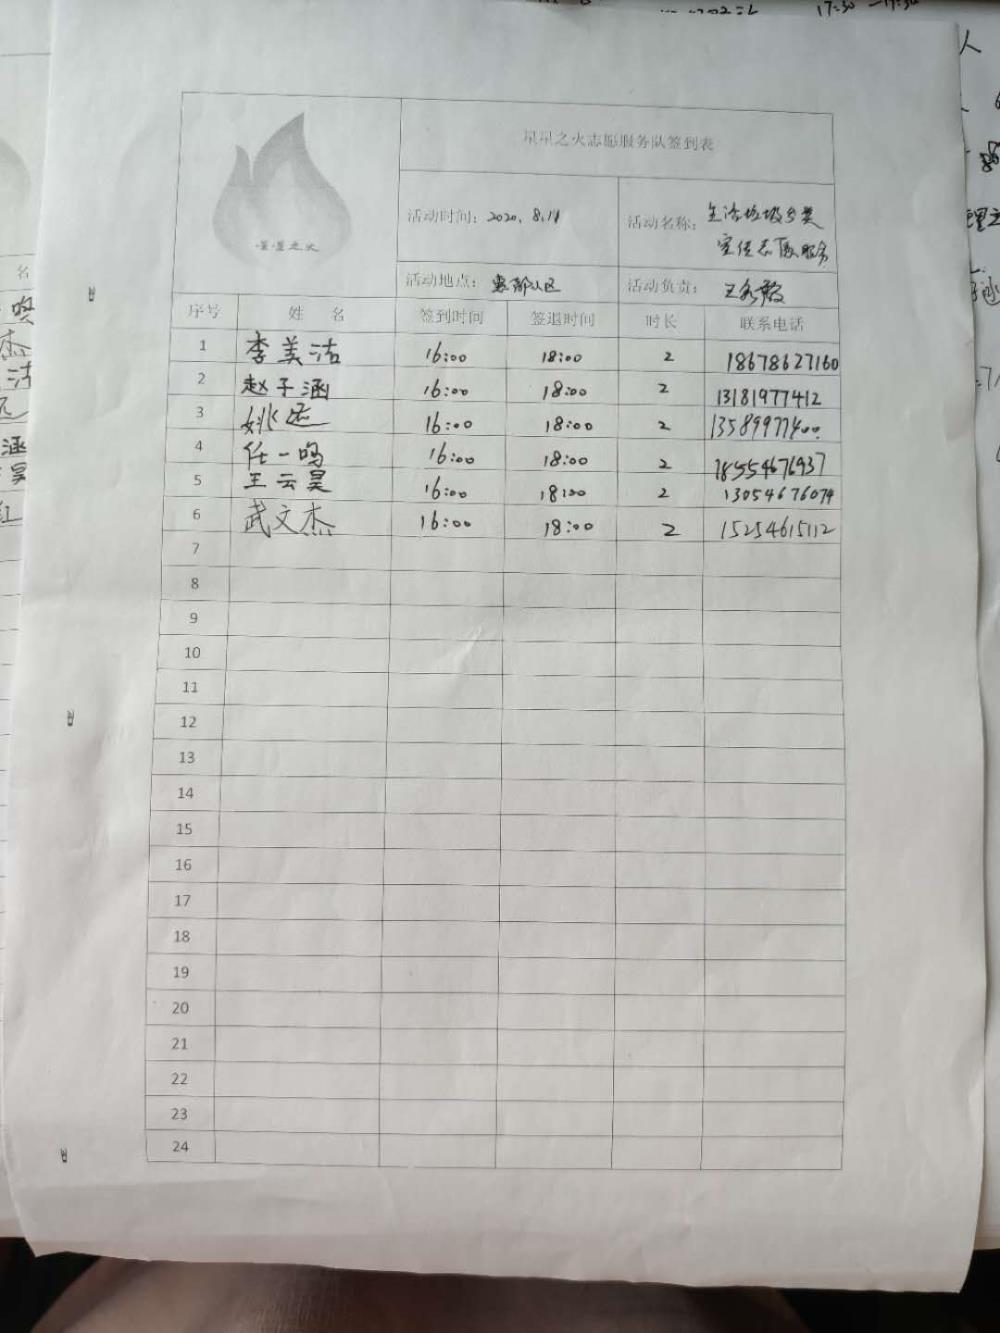 星星之火志愿服务队签到表
星星之火
活动时间: 2020. 8.11
活动名称: 生活垃圾分类
宣传志愿服务
活动地点:
活动负责:
序号 姓 名 签到时间 签退时间 时长 联系电话
1 李美洁 16:00 18:00 2 18678627160
2 赵子涵 16:00 18:00 2 13181977412
3 姚远 16:00 18:00 2 13589977400
4 任一鸣 16:00 18:00 2 18554676937
5 王云昊 16:00 18:00 2 13054676074
6 武文杰 16:00 18:00 2 15254615112
7
8
9
10
11
12
13
14
15
16
17
18
19
20
21
22
23
24